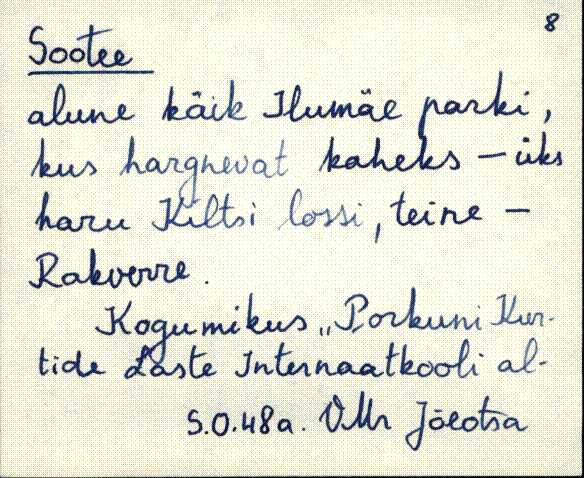 8
Sootee
alune käik Ilumäe parki,
kus hargnevat kaheks – üks
haru Kiltsi lossi, teine –
Rakverre.
Kogumikus „Porkuni Kur-
tide Laste Internaatkooli al-
S.O.48a. VMr Jõeotsa